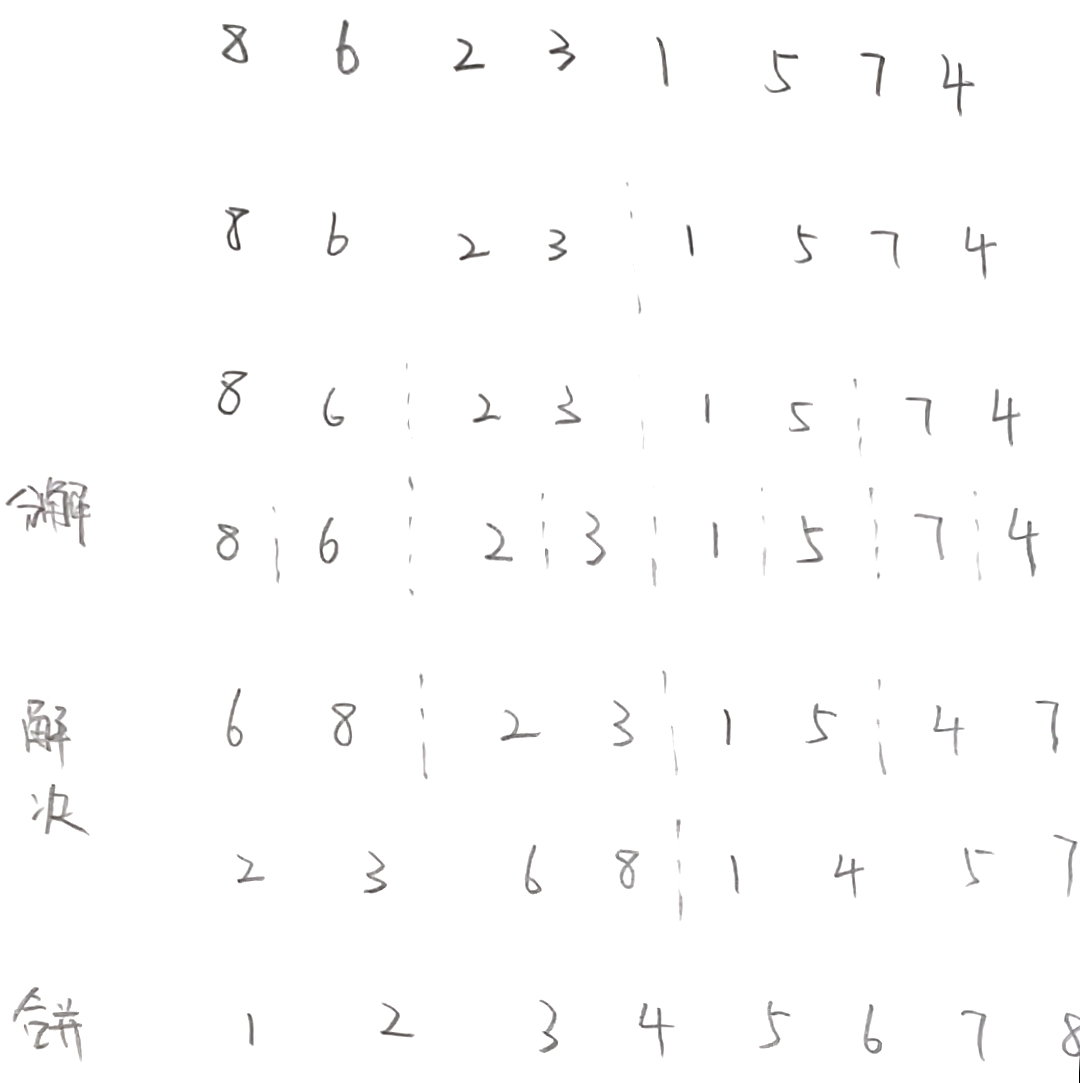 8 6 2 3 1 5 7 4
8 6 2 3 1 5 7 4
8 6 2 3 1 5 7 4
分解 8 6 2 3 1 5 7 4
解决 6 8 2 3 1 5 4 7
2 3 6 8 1 4 5 7
合并 1 2 3 4 5 6 7 8